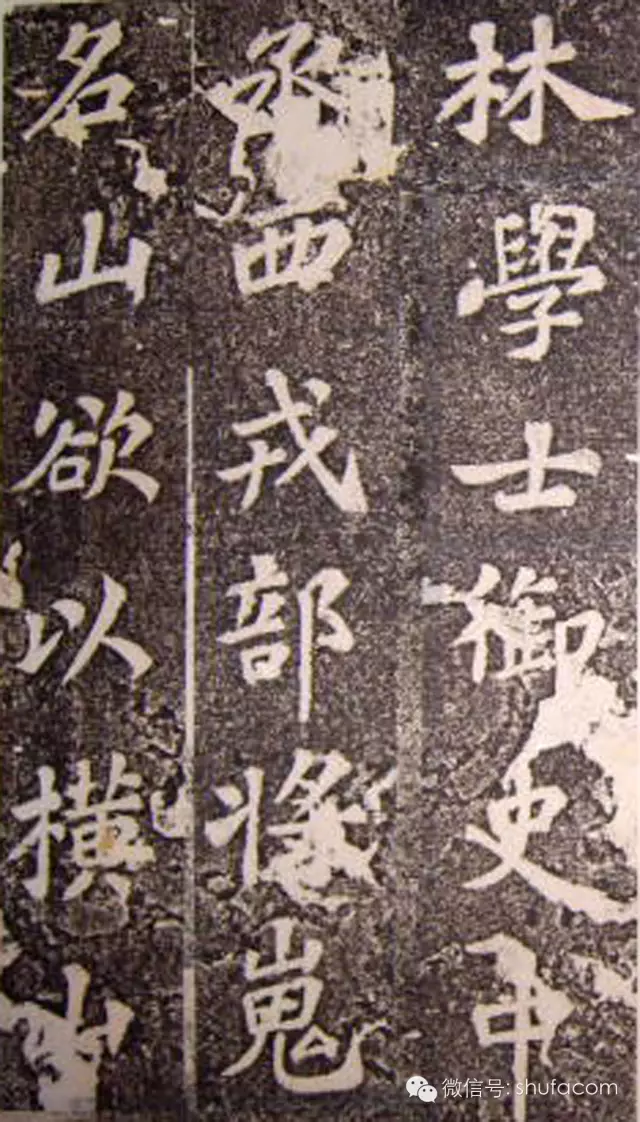 林學士御史中
丞西戎部將嵬
名山欲以橫山
微信号: shufacom